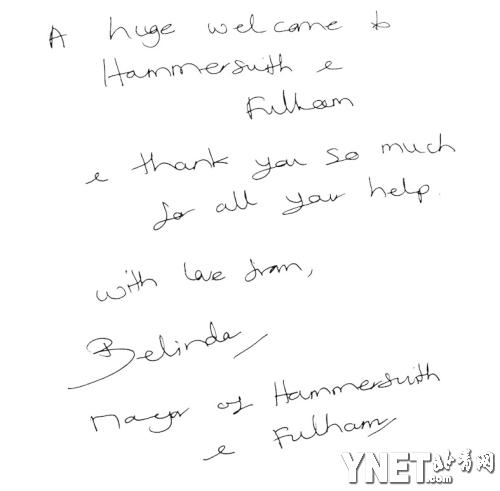 A huge welcome to
Hammersmith &
Fulham
& thank you so much
for all your help.
with love from,
Belinda
Mayor of Hammersmith
& Fulham
YNET.com 北青网